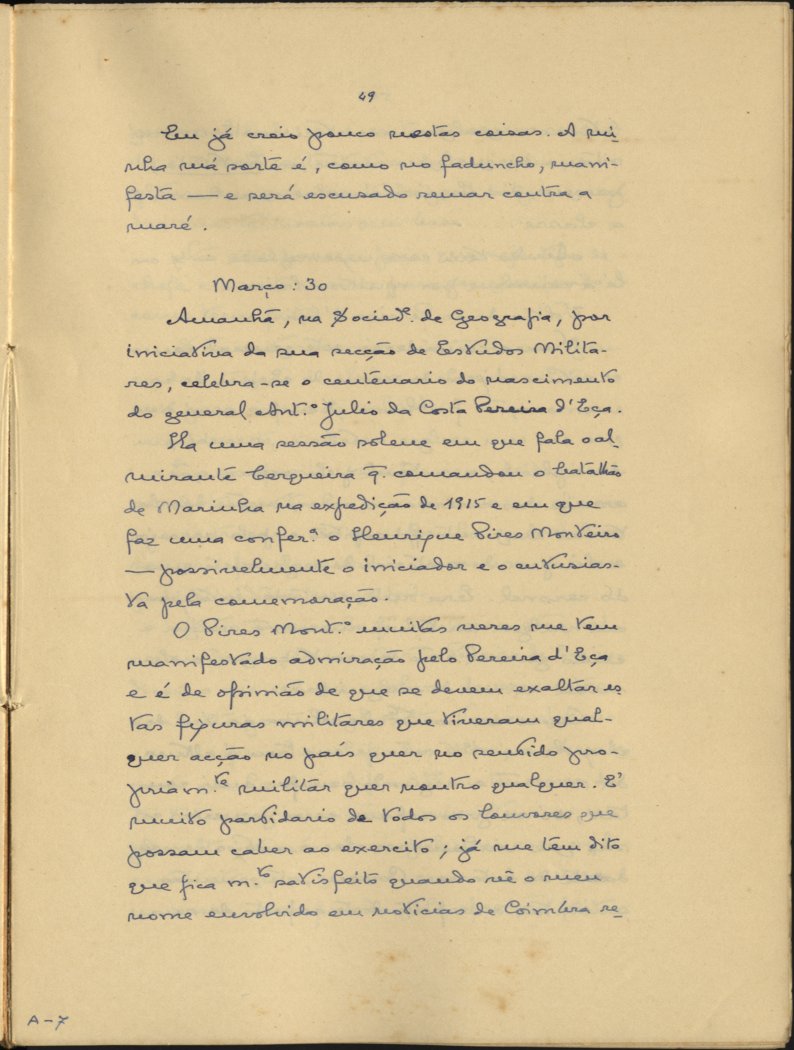 49
Eu já creio pouco nestas coisas. A mi-
nha má sorte é, como no faduncho, mani-
festa — e será escusado remar contra a
maré.
Março : 30
Amanhã, na Socied.e de Geografia, por
iniciativa da sua secção de Estudos Milita-
res, celebra-se o centenario do nascimento
do general Ant.º Julio da Costa Pereira d'Eça.
Ha uma sessão solene em que fala o al-
mirante Cerqueira q̃. comandou o batalhão
de Marinha na expedição de 1915 e em que
faz uma confer.ª o Henrique Pires Monteiro
— possivelmente o iniciador e o entusias-
ta pela comemoração.
O Pires Mont.º muitas vezes me tem
manifestado admiração pelo Pereira d'Eça
e é de opinião de que se devem exaltar es-
tas figuras militares que tiveram qual-
quer acção no país quer no sentido pro-
priam.te militar quer noutro qualquer. E'
muito partidario de todos os louvores que
possam caber ao exercito; já me tem dito
que fica m.to satisfeito quando vê o meu
nome envolvido em noticias de Coimbra re-
A-7